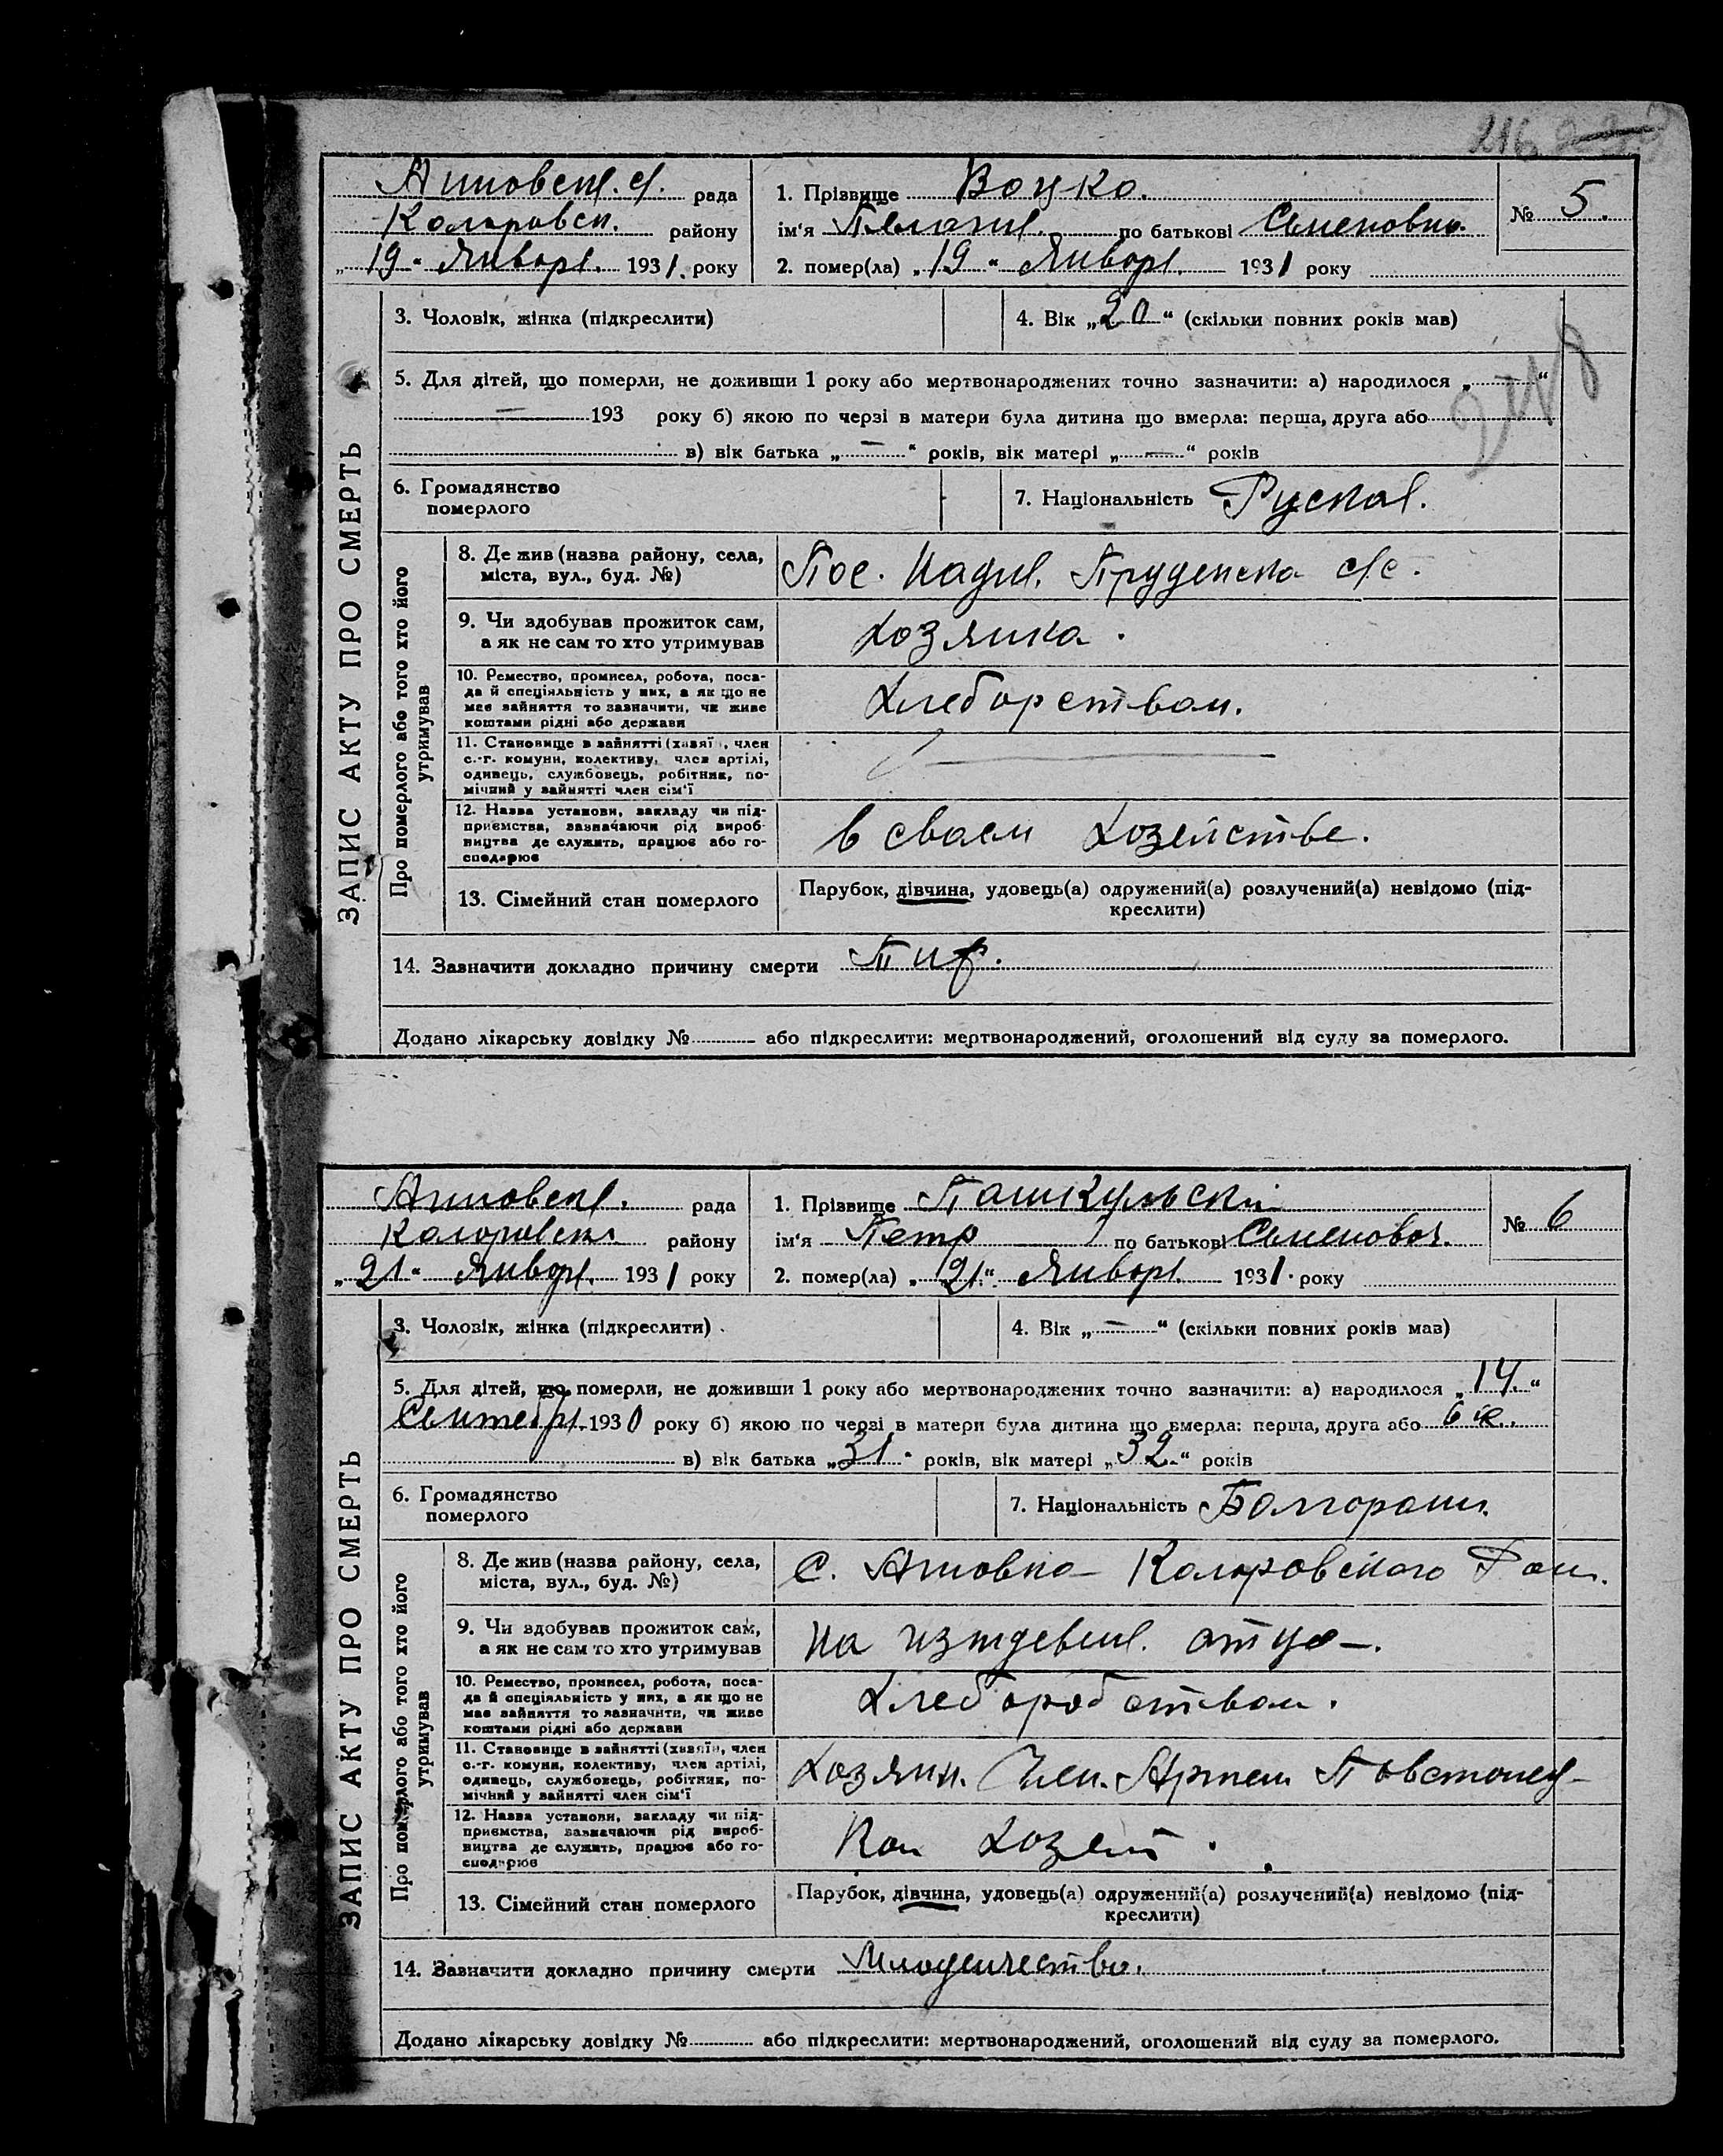 216
Анновск. с. рада
Коларовск. району
„19“ Января. 1931. року
1. Прізвище Воцко.
ім'я Пелагия. по батькові Семеновна.
2. помер(ла) „19“ Января. 1931 року
№ 5.
ЗАПИС АКТУ ПРО СМЕРТЬ
3. Чоловік, жінка (підкреслити)
4. Вік „20“ (скільки повних років мав)
5. Для дітей, що померли, не доживши 1 року або мертвонароджених точно зазначити: а) народилося „ “
— 193 року б) якою по черзі в матери була дитина що вмерла: перша, друга або
в) вік батька „—“ років, вік матері „—“ років
6. Громадянство
померлого
7. Національність Руская.
Про померлого або того хто його
утримував
8. Де жив (назва району, села,
міста, вул., буд. №)
Пос. Надия. с/с.
9. Чи здобував прожиток сам,
а як не сам то хто утримував
Хозяика.
10. Ремество, промисел, робота, поса-
да й спеціяльність у них, а як що не
має зайняття то зазначити, чи живе
коштами рідні або держави
Хлеборством.
11. Становище в зайнятті (хазяїн, член
с.-г. комуни, колективу, член артілі,
одинець, службовець, робітник, по-
мічний у зайнятті член сім'ї
12. Назва установи, закладу чи під-
приємства, зазначаючи рід вироб-
ництва де служить, працює або го-
сподарює
в сваем хозеистве.
13. Сімейний стан померлого
Парубок, дівчина, удовець(а) одружений(а) розлучений(а) невідомо (під-
креслити)
14. Зазначити докладно причину смерти Тиф.
Додано лікарську довідку № або підкреслити: мертвонароджений, оголошений від суду за померлого.
Анновск. рада
Коларовск. району
„21“ Января. 1931 року
1. Прізвище Пашкульски
ім'я Петр по батькові Семенович.
2. помер(ла) „21“ Января. 1931. року
№ 6
ЗАПИС АКТУ ПРО СМЕРТЬ
3. Чоловік, жінка (підкреслити)
4. Вік „—“ (скільки повних років мав)
5. Для дітей, що померли, не доживши 1 року або мертвонароджених точно зазначити: а) народилося „14.“
Сентебря. 1930 року б) якою по черзі в матери була дитина що вмерла: перша, друга або 6
в) вік батька „31“ років, вік матері „32.“ років
6. Громадянство
померлого
7. Національність Болгорани.
Про померлого або того хто його
утримував
8. Де жив (назва району, села,
міста, вул., буд. №)
С. Анновка Коларовского Раи.
9. Чи здобував прожиток сам,
а як не сам то хто утримував
На изждевен. отца.
10. Ремество, промисел, робота, поса-
да й спеціяльність у них, а як що не
має зайняття то зазначити, чи живе
коштами рідні або держави
Хлеборобством.
11. Становище в зайнятті (хазяїн, член
с.-г. комуни, колективу, член артілі,
одинець, службовець, робітник, по-
мічний у зайнятті член сім'ї
Хозяин. Член. Артели Повстонец
12. Назва установи, закладу чи під-
приємства, зазначаючи рід вироб-
ництва де служить, працює або го-
сподарює
Кол Хозеис.
13. Сімейний стан померлого
Парубок, дівчина, удовець(а) одружений(а) розлучений(а) невідомо (під-
креслити)
14. Зазначити докладно причину смерти Младенчество.
Додано лікарську довідку № або підкреслити: мертвонароджений, оголошений від суду за померлого.